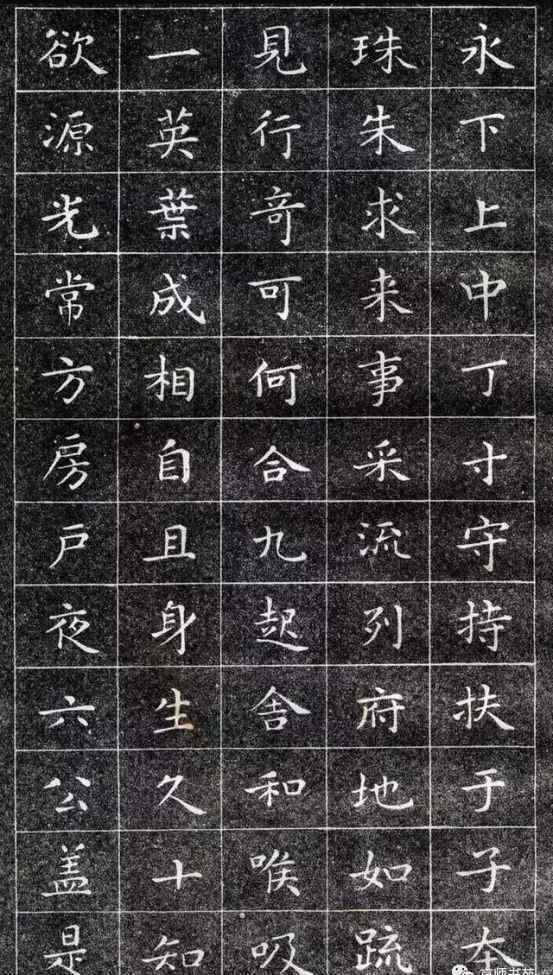 永下上中丁寸守持扶于子本
珠朱求来事采流列府地如疏
見行奇可何合九起舍和喉吸
一英葉成相自且身生久十知
欲源光常方房戶夜六公盖是